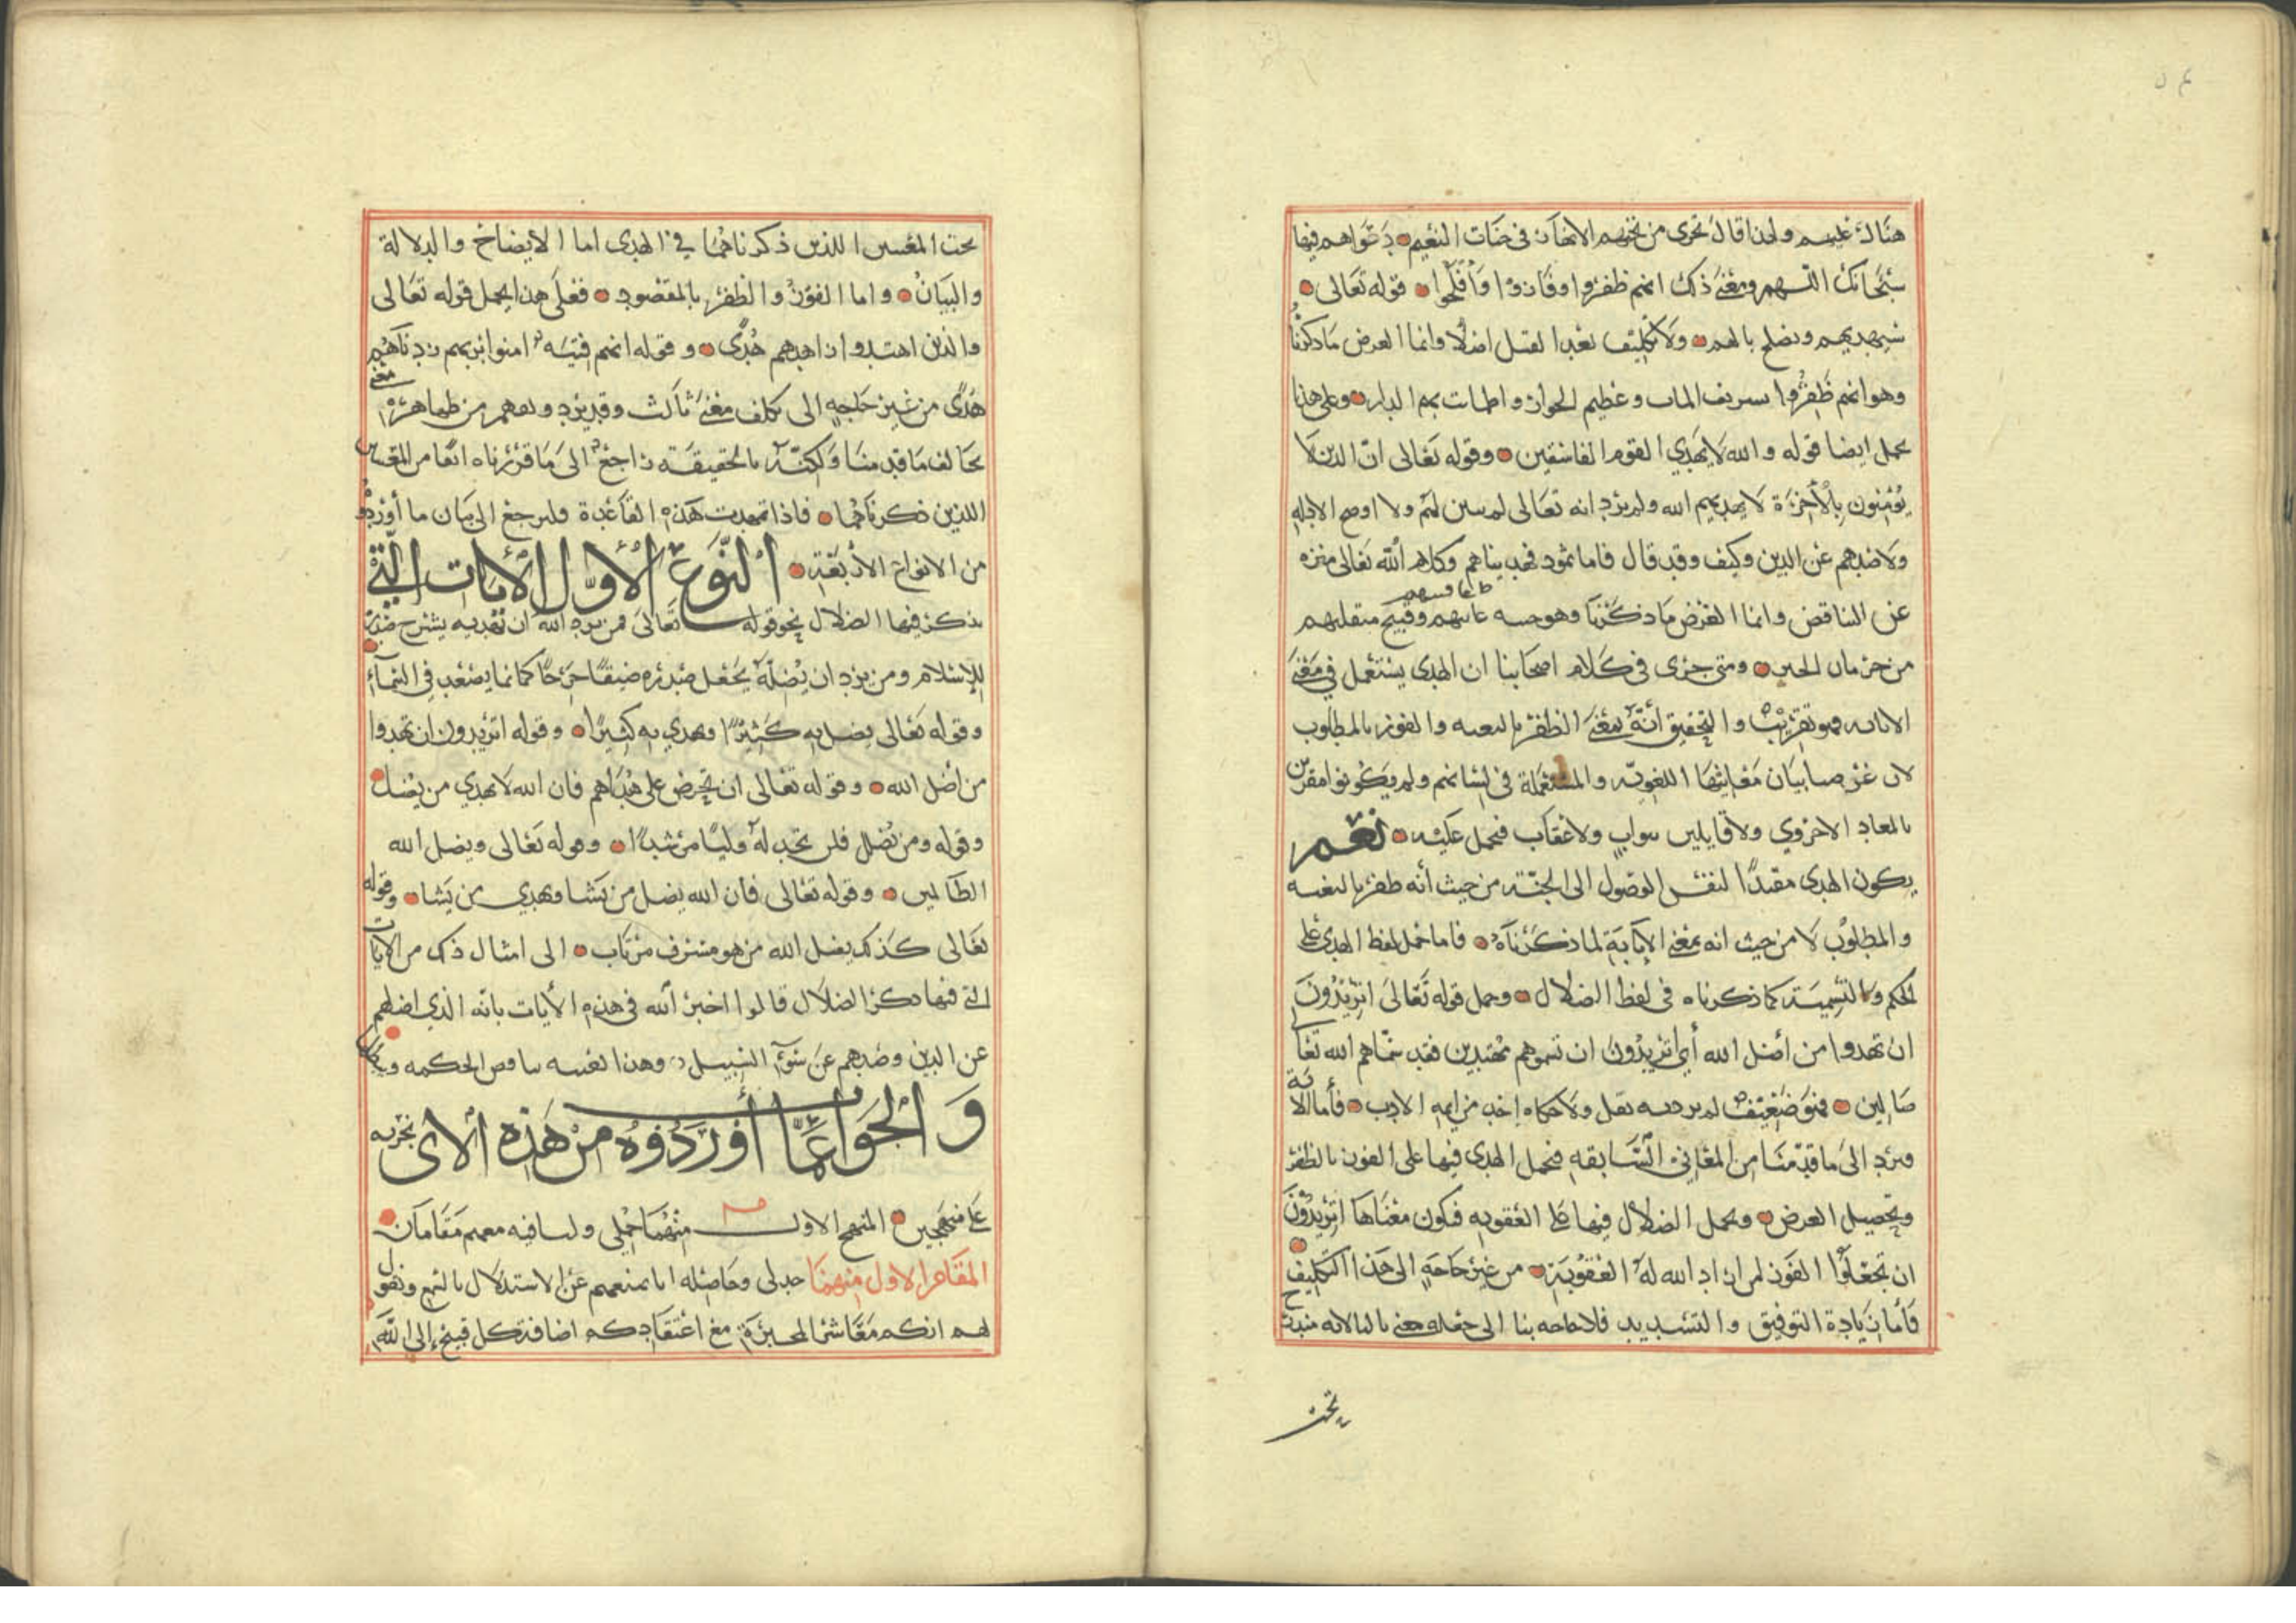 هنالك عليهم ولهذا قال تجرى من تحتهم الانهار فى جنات النعيم دعواهم فيها
سبحانك اللهم ومعنى ذلك انهم ظفروا وفازوا وافلحوا قوله تعالى
سيهديهم ويصلح بالهم ولا تكليف بعد القتل اصلا وانما الغرض ماذكرنا
وهو انهم ظفروا بشريف المآب وعظيم الجوار واطمانت بهم الدار وعلى هذا
يحمل ايضا قوله والله لا يهدي القوم الفاسقين وقوله تعالى ان الذين لا
يؤمنون بالآخرة لا يهديهم الله ولم يرد انه تعالى لم يبين لهم ولا اوضح الادلة
ولا ضدهم عن الدين وكيف وقد قال فاما ثمود فهديناهم وكلام الله تعالى منزه
عن التناقض وانما الغرض ماذكرنا وهو خيبة مآبهم وقبيح منقلبهم
من حرمان الخير ومتى جرى فى كلام اصحابنا ان الهدى يستعمل في معنى
الاثابه فهو تقريب والتحقيق انه بمعنى الظفر بالبغيه والفوز بالمطلوب
لان غرضنا بيان معانيها اللغويه والمستعملة فى لسانهم ولم يكونوا مقرين
بالمعاد الاخروي ولا قايلين بثواب ولا عقاب فنحمل عليه نعم
يكون الهدى مقيدا لنفس الوصول الى الجنة من حيث أنه ظفر بالبغيه
والمطلوب لا من حيث انه بمعنى الاثابة لما ذكرناه فاما حمل لفظ الهدى على
الحكم والتسمية كما ذكرناه فى لفظ الضلال وحمل قوله تعالى اتريدون
ان تهدوا من أضل الله أي اتريدون ان تسموهم مهتدين فقد سماهم الله تعا
ضالين فهو ضعيف لم يرد به نقل ولا حكاه احد من ايمة الادب فأما الآية
فترد الى ما قدمنا من المعاني السابقه فنحمل الهدى فيها على الفوز بالظفر
وتحصيل الغرض ويحمل الضلال فيها على العقوبه فيكون معناها اتريدون
ان تجعلوا الفوز لمن اراد الله له العقوبة من غير حاجة الى هذا التكليف
فأما زيادة التوفيق والتسديد فلا حاجه بنا الى جعله معنى ثالثا لانه مندرج
تحت
تحت المعنيين اللذين ذكرناهما في الهدى اما الايضاح والدلالة
والبيان واما الفوز والظفر بالمقصود فعلى هذا يحمل قوله تعالى
والذين اهتدوا زادهم هدى وقوله انهم فتية امنوا بربهم زدناهم
هدى من غير حاجة الى تكلف معنى ثالث وقد يرد وفهم من ظاهره معنى
يخالف ما قدمنا ولكنه بالحقيقة راجع الى ما قررناه انفا من المعنيين
اللذين ذكرناهما فاذا تمهدت هذه القاعدة فلنرجع الى بيان ما أوردوه
من الانواع الأربعة النوع الأول الأيات التي
يذكر فيها الضلال نحو قوله تعالى فمن يرد الله ان يهديه يشرح صدره
للاسلام ومن يرد ان يضله يجعل صدره ضيقا حرجا كانما يصعد في السماء
وقوله تعالى يضل به كثيرا ويهدي به كثيرا وقوله اتريدون ان تهدوا
من أضل الله وقوله تعالى ان تحرص على هداهم فان الله لا يهدي من يضل
وقوله ومن يضلل فلن تجد له وليا مرشدا وقوله تعالى ويضل الله
الظالمين وقوله تعالى فان الله يضل من يشا ويهدي من يشا وقوله
تعالى كذلك يضل الله من هو مسرف مرتاب الى امثال ذلك من الايات
التى فيها ذكر الضلال قالوا اخبر الله فى هذه الأيات بانه الذي اضلهم
عن الدين وضدهم عن سوآء السبيل وهذا بعينه يناقض الحكمه
والجواب عما أوردوه من هذه الاى نجريه
على منهجين المنهج الاول منهما جملي ولنا فيه معهم مقامان
المقام الاول منهما جدلى وحاصله انا نمنعهم عن الاستدلال بالسمع ونقول
لهم انكم معاشر المجبرة مع اعتقادكم اضافة كل قبيح إلى الله